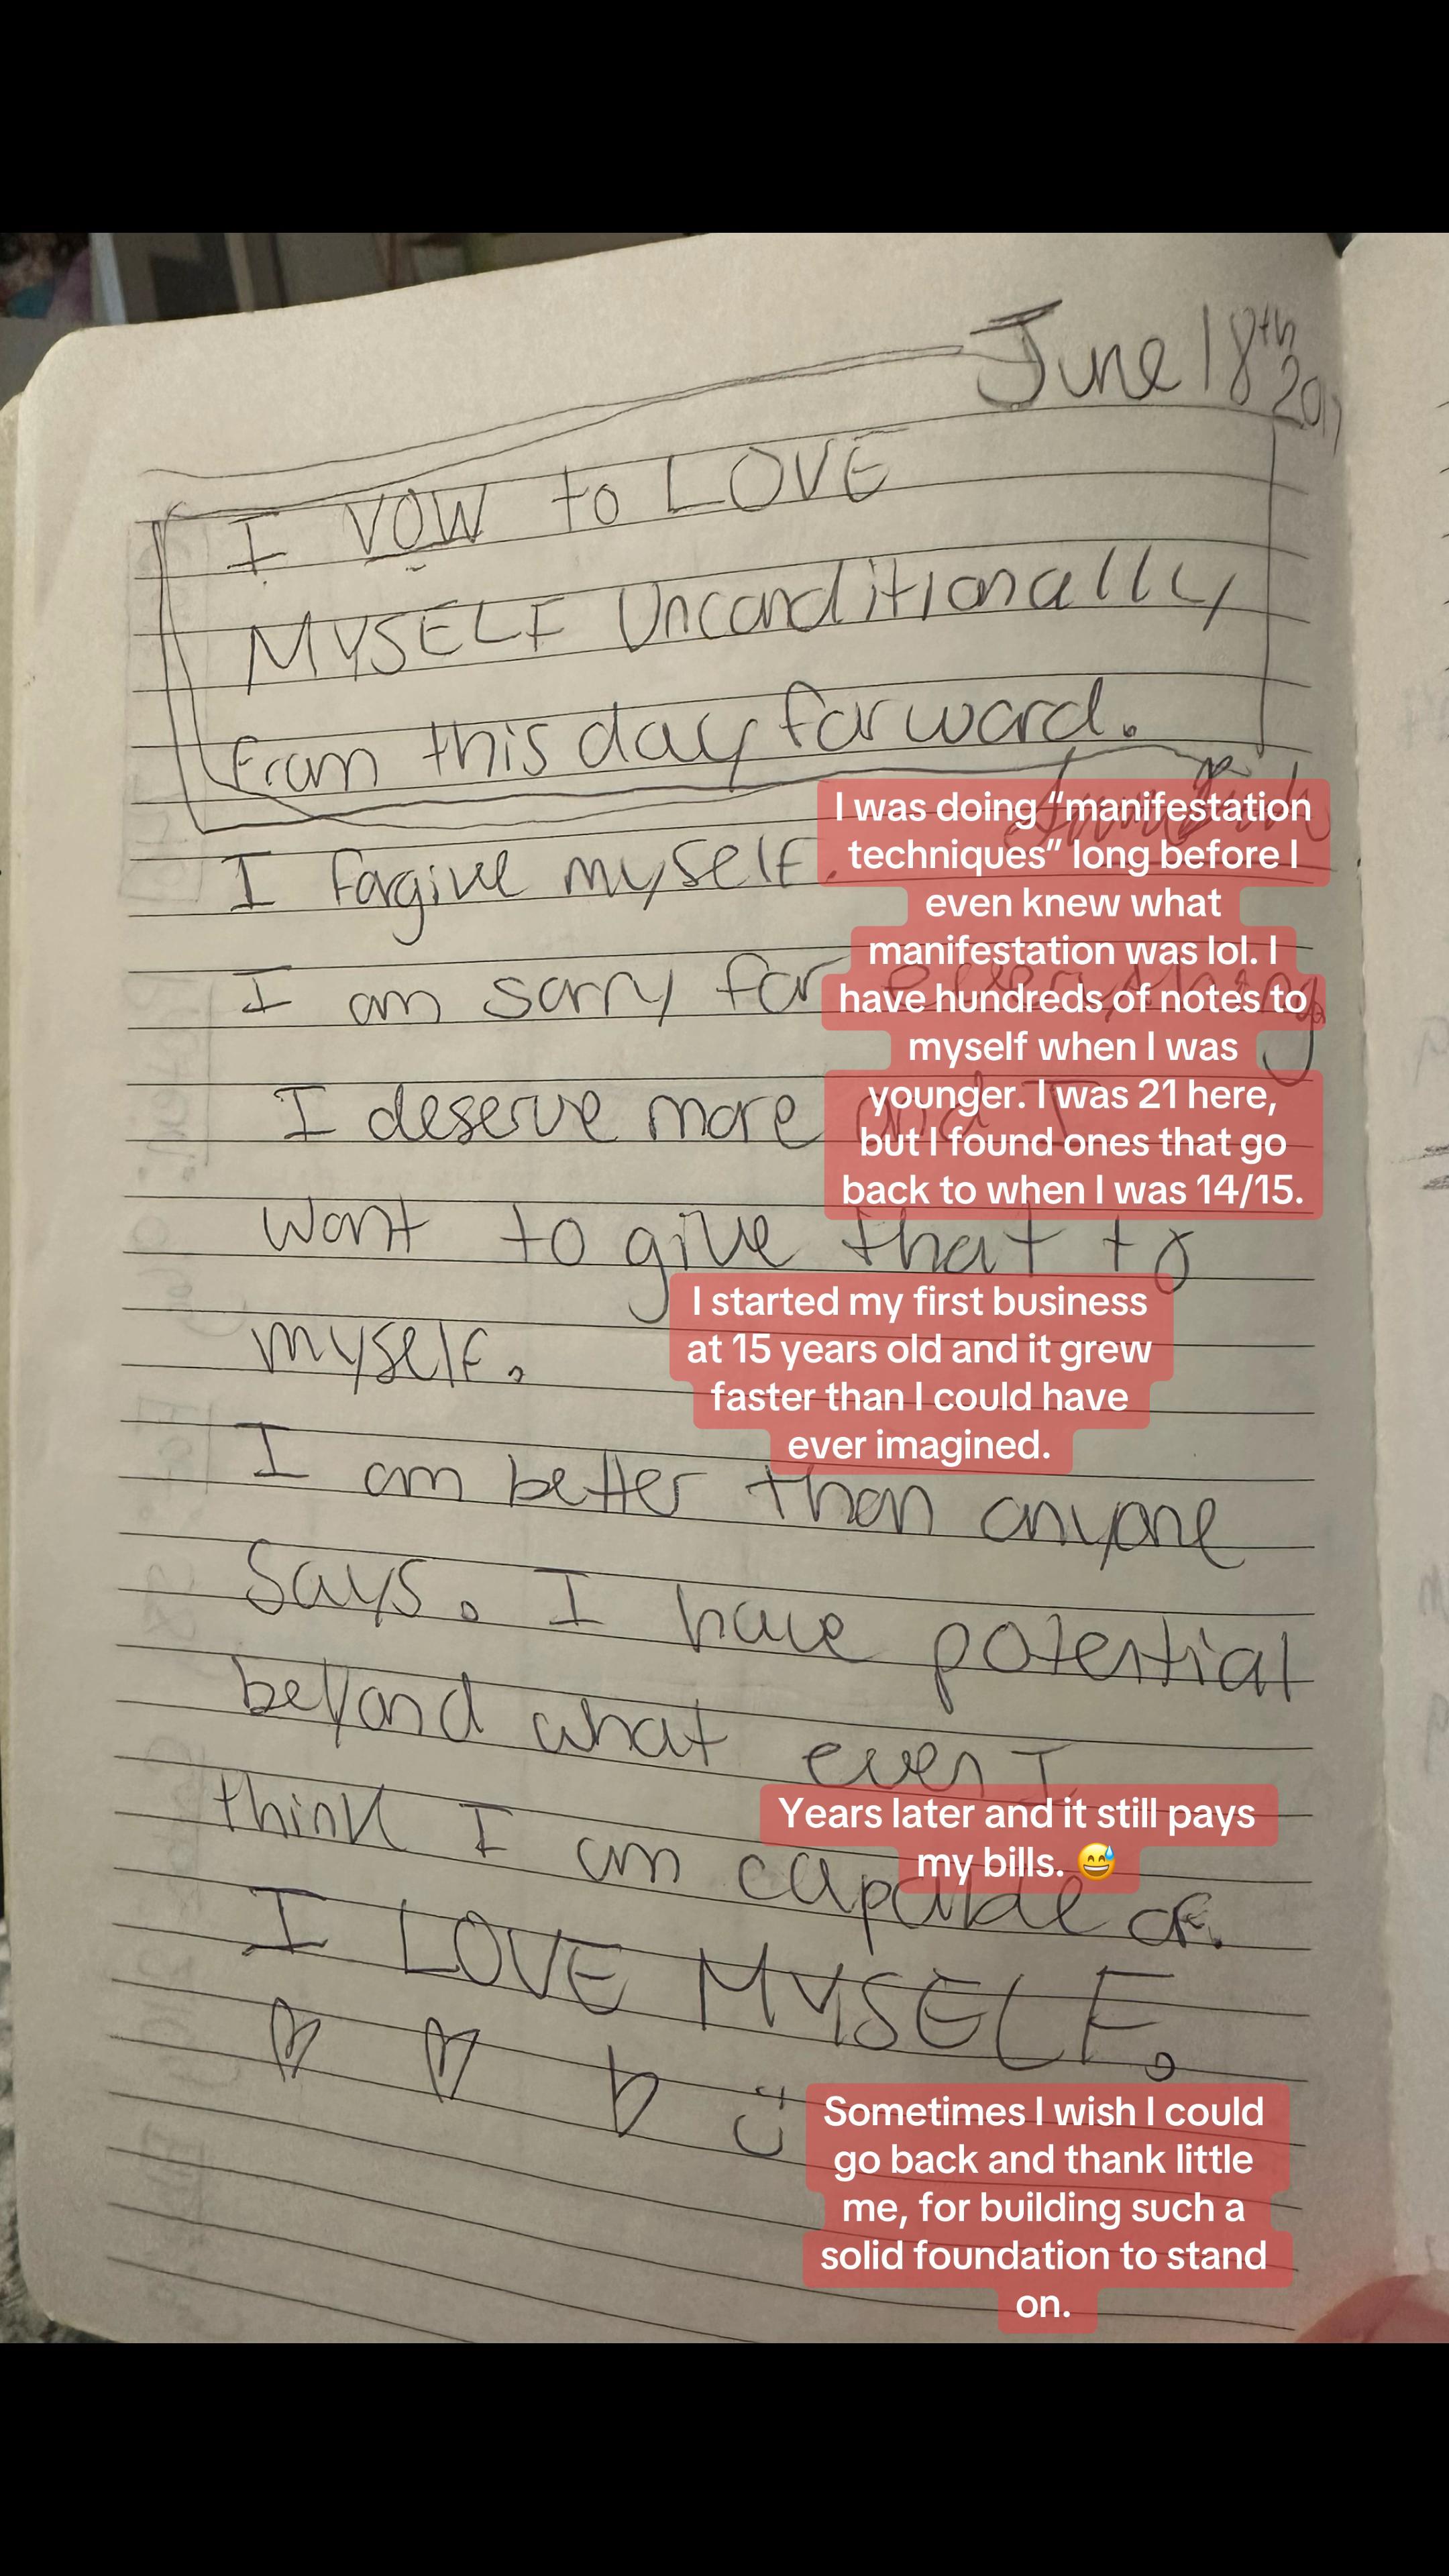 June 18th
2017
I VOW to LOVE
MYSELF Unconditionally
from this day forward.
I forgive myself.
I am sorry for everything
I deserve more and I
want to give that to
myself.
I am better than anyone
says. I have potential
beyond what even I
think I am capable of.
I LOVE MYSELF.
I was doing “manifestation
techniques” long before I
even knew what
manifestation was lol. I
have hundreds of notes to
myself when I was
younger. I was 21 here,
but I found ones that go
back to when I was 14/15.
I started my first business
at 15 years old and it grew
faster than I could have
ever imagined.
Years later and it still pays
my bills. 😅
Sometimes I wish I could
go back and thank little
me, for building such a
solid foundation to stand
on.